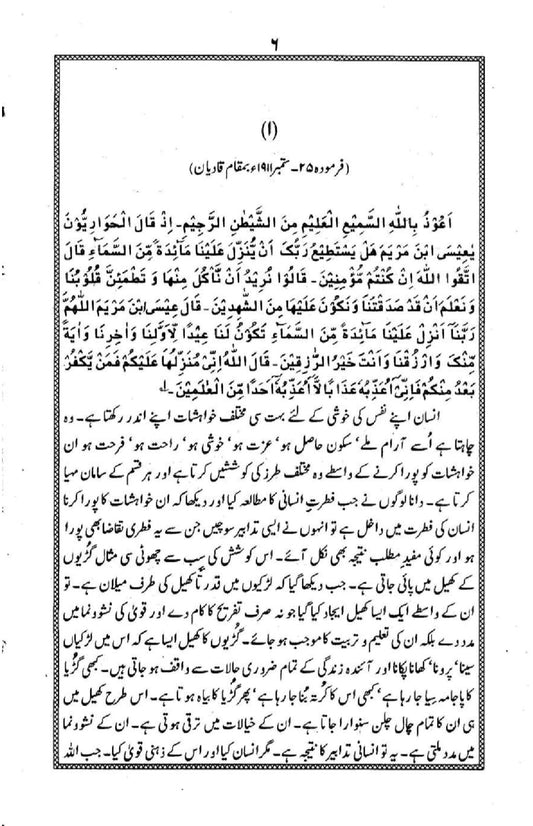 ۶
(۱)
(فرمودہ ۲۵۔ ستمبر ۱۹۱۱ء بمقام قادیان)
اَعُوْذُ بِاللّٰهِ السَّمِيْعِ الْعَلِيْمِ مِنَ الشَّيْطٰنِ الرَّجِيْمِ۔ اِذْ قَالَ الْحَوَارِيُّوْنَ
يٰعِيْسَى ابْنَ مَرْيَمَ هَلْ يَسْتَطِيْعُ رَبُّكَ اَنْ يُّنَزِّلَ عَلَيْنَا مَآئِدَةً مِّنَ السَّمَآءِ قَالَ
اتَّقُوا اللّٰهَ اِنْ كُنْتُمْ مُّؤْمِنِيْنَ۔ قَالُوْا نُرِيْدُ اَنْ نَّاْكُلَ مِنْهَا وَ تَطْمَئِنَّ قُلُوْبُنَا
وَ نَعْلَمَ اَنْ قَدْ صَدَقْتَنَا وَ نَكُوْنَ عَلَيْهَا مِنَ الشّٰهِدِيْنَ۔ قَالَ عِيْسَى ابْنُ مَرْيَمَ اللّٰهُمَّ
رَبَّنَآ اَنْزِلْ عَلَيْنَا مَآئِدَةً مِّنَ السَّمَآءِ تَكُوْنُ لَنَا عِيْدًا لِّاَوَّلِنَا وَ اٰخِرِنَا وَ اٰيَةً
مِّنْكَ وَ ارْزُقْنَا وَ اَنْتَ خَيْرُ الرّٰزِقِيْنَ۔ قَالَ اللّٰهُ اِنِّيْ مُنَزِّلُهَا عَلَيْكُمْ فَمَنْ يَّكْفُرْ
بَعْدُ مِنْكُمْ فَاِنِّيْٓ اُعَذِّبُهٗ عَذَابًا لَّآ اُعَذِّبُهٗٓ اَحَدًا مِّنَ الْعٰلَمِيْنَ۔ ۱؎
انسان اپنے نفس کی خوشی کے لئے بہت سی مختلف خواہشات اپنے اندر رکھتا ہے۔ وہ
چاہتا ہے اُسے آرام ملے‘ سکون حاصل ہو‘ عزت ہو‘ خوشی ہو‘ راحت ہو‘ فرحت ہو ان
خواہشات کو پورا کرنے کے واسطے وہ مختلف طرز کی کوششیں کرتا ہے اور ہر قسم کے سامان مہیا
کرتا ہے۔ دانا لوگوں نے جب فطرتِ انسانی کا مطالعہ کیا اور دیکھا کہ ان خواہشات کا پورا کرنا
انسان کی فطرت میں داخل ہے تو انہوں نے ایسی تدابیر سوچیں جن سے یہ فطری تقاضا بھی پورا
ہو اور کوئی مفید مطلب نتیجہ بھی نکل آئے۔ اس کوشش کی سب سے چھوٹی سی مثال گڑیوں
کے کھیل میں پائی جاتی ہے۔ جب دیکھا گیا کہ لڑکیوں میں قدرتاً کھیل کی طرف میلان ہے۔ تو
ان کے واسطے ایک ایسا کھیل ایجاد کیا گیا جو نہ صرف تفریح کا کام دے اور قویٰ کی نشوونما میں
مدد دے بلکہ ان کی تعلیم و تربیت کا موجب ہو جائے۔ گڑیوں کا کھیل ایسا ہے کہ اس میں لڑکیاں
سینا‘ پرونا‘ کھانا پکانا اور آئندہ زندگی کے تمام ضروری حالات سے واقف ہو جاتی ہیں۔ کبھی گڑیا
کا پاجامہ سِیا جا رہا ہے‘ کبھی اس کا کُرتہ بُنا جا رہا ہے‘ پھر گڑیا کا بیاہ ہوتا ہے۔ اس طرح کھیل میں
ہی ان کا تمام چال چلن سنوارا جاتا ہے۔ ان کے خیالات میں ترقی ہوتی ہے۔ ان کے نشوونما
میں مدد ملتی ہے۔ یہ تو انسانی تدابیر کا نتیجہ ہے۔ مگر انسان کیا اور اس کے ذہنی قویٰ کیا۔ جب اللہ